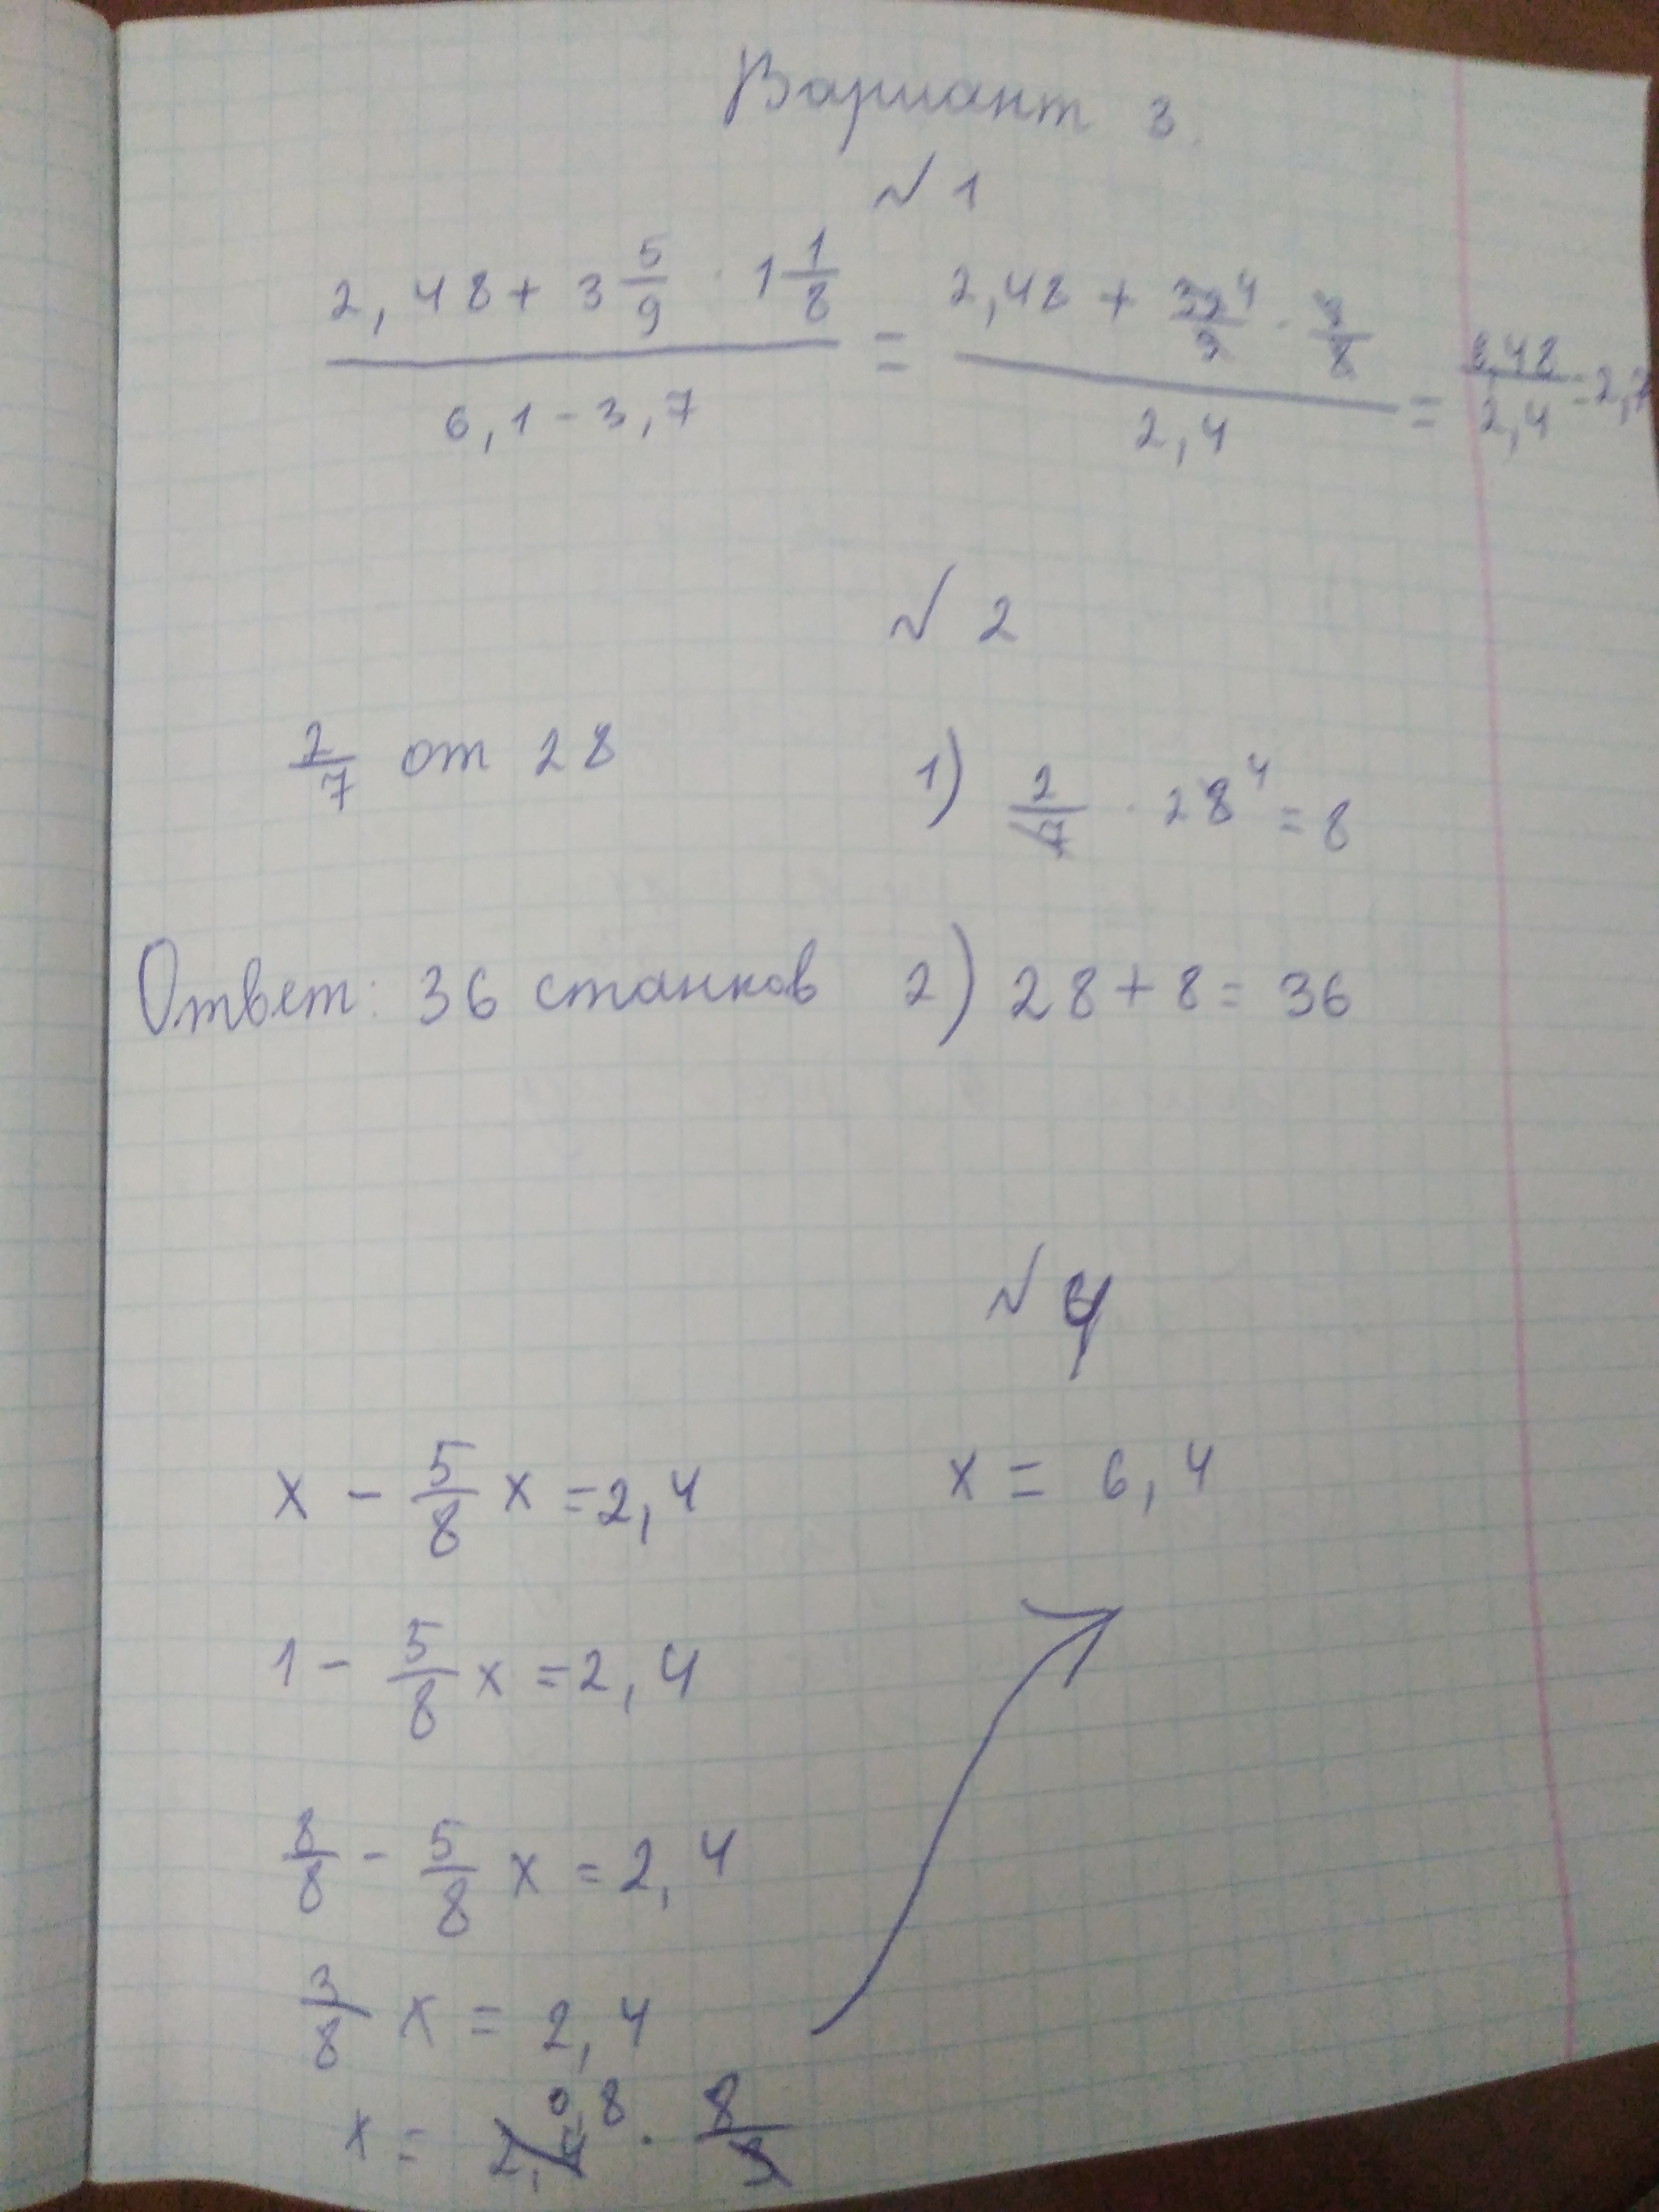 Вариант 3.
№ 1
(2,48 + 3 5/9 · 1 1/8) / (6,1 - 3,7) = (2,48 + 32⁴/9 · 9/8) / 2,4 = 6,48/2,4 = 2,7
№ 2
2/7 от 28 1) 2/7 · 28⁴ = 8
Ответ: 36 станков 2) 28 + 8 = 36
№ 4
x - 5/8 x = 2,4 x = 6,4
1 - 5/8 x = 2,4
8/8 - 5/8 x = 2,4
3/8 x = 2,4
x = 2,4 0,8 · 8/3